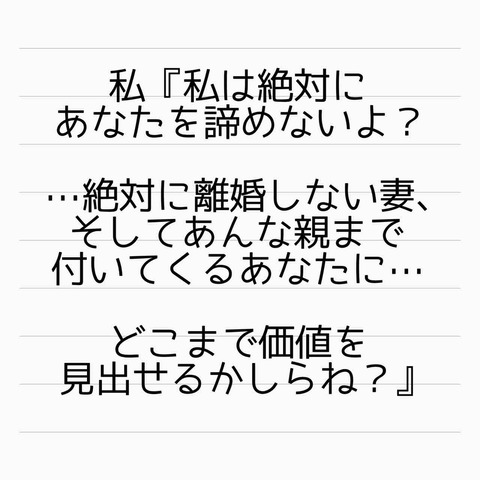 私『私は絶対に
あなたを諦めないよ？
…絶対に離婚しない妻、
そしてあんな親まで
付いてくるあなたに…
どこまで価値を
見出せるかしらね？』